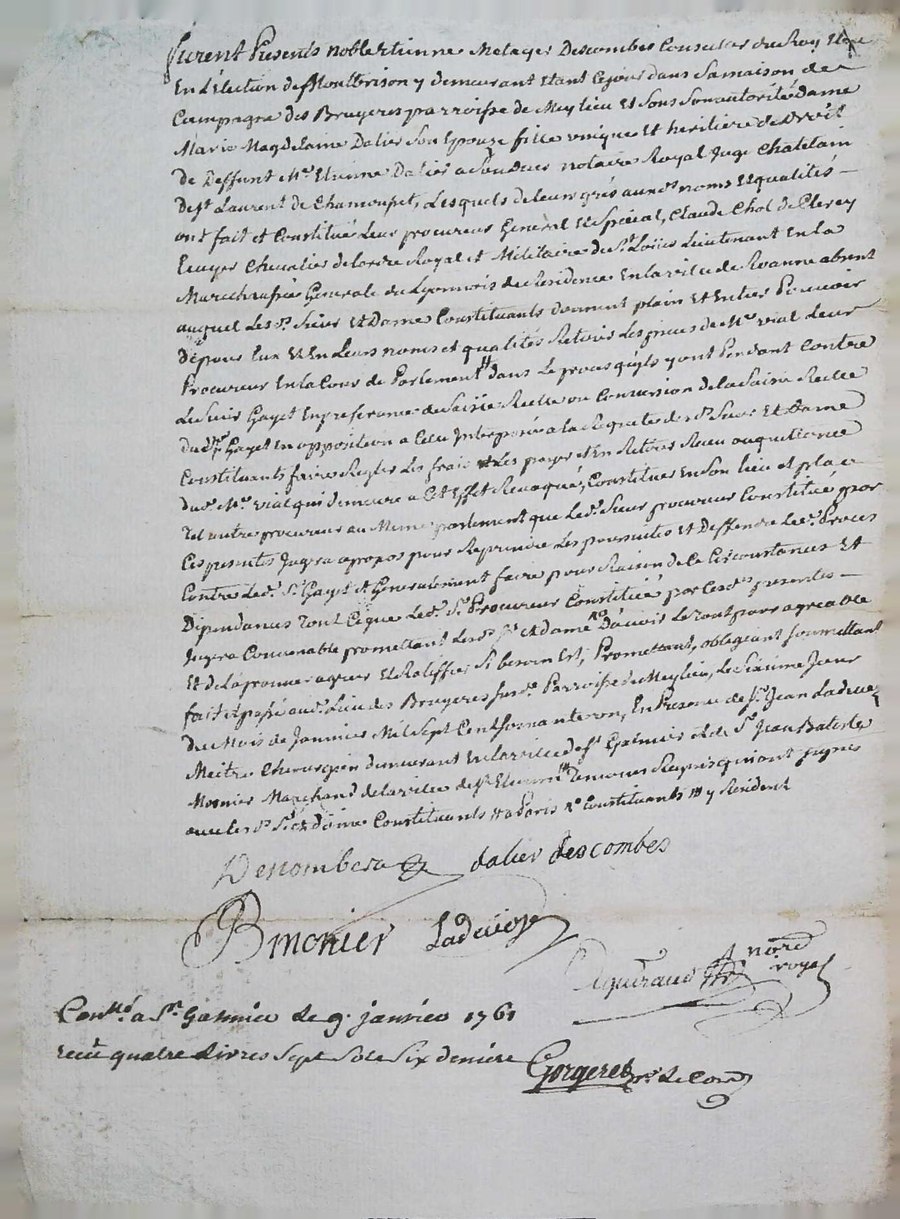 furent Presents noble Etienne Metayer Descombes Conseiller du Roy Eleu
En l'Election de Montbrison y demeurant Etant Cejour dans Samaison de
Campagne des Bruyeres parroisse de Meylieu Et Sous Sonautorité dame
Marie Magdelaine Dalier Son Epouze fille unique Et heritiere de Droit
de Deffunt Me. Etienne Dalier notaire Royal Juge Chatelain
De St. Laurent de Chamousset, Lesquels deleurs grés auxd. noms Et qualités —
ont fait et Constitué Leur procureur General Et Special, Claude Chol de Clerey
Ecuyer Chevalier delordre Royal et Militaire de St. Loüis Lieutenant En la
Marechaussée Generale du Lyonnois de Residence En laville de Roanne absent
auquel Les Srs. Sieur Et Dame Constituants donnent plain Et Entier Pouvoir
de pour Eux Et En Leurs noms et qualités Retirer Les pieces de Me. vial Leur
Procureur En la Cour de Parlement dans Le proces quils y ont Pendant Contre
Le Sieur Gayet En preferance de Saisie Reelle ou Conversion de la Saisie Reelle
dud. Sr. Gayet En opposition a Celle Interposée a la Requete desd. Sieur Et Dame
Constituants faire Regler Les frais Les payer et En Retirer Receu ou quittance
dud. Me. vial qui demeure a Cet Effet Revoqué, Constituer En Son lieu et place
Tel autre procureur au Meme parlement que Led. Sieur procureur Constitué par
Ces presentes Jugera apropos pour Reprendre Les poursuites Et Deffendre Led. Proces
Contre Led. Sr. Gayet Et Generalement faire pour Raison de Ce Circonstances Et
Dépendances Tout Ceque Led. Sr. Procureur Constitué par Cesd. presentes —
Jugera Convenable promettant Lesd. Sr. et dame D'avoir Le Tout pour agreable
Et de l'approuver agreer Et Ratiffier Si besoin Est, Promettant, obligeant Soumettant
fait Et passé aud. Lieu des Bruyeres susd. Parroisse de Meylieu, Le Jour
du Mois de Janvier Mil Sept Cent Soixante Et un, En Presence de Sr. Jean Ladevèze
Maitre Chirurgien demeurant En laville de St. Galmier Et de Sr. Jean Batiste
Monier Marchand de laville de St. Etienne Temoins Requis qui ont signés
avec les Srs. Sr. et dame Constituants a Paris Constituants y Resident
Descombes dalier descombes
B monier Ladevèze
nore. royal
Conllé. a St. Galmier le 9. janvier 1761
recu quatre livres Sept Sols Six deniers
Gorgeret